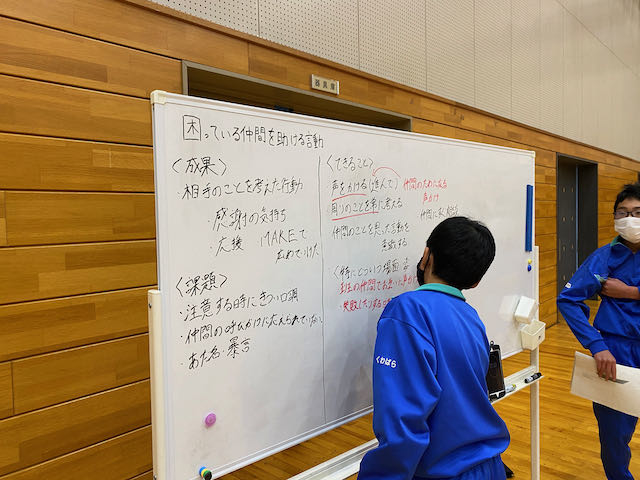 器具庫
困っている仲間を助ける言動
〈成果〉
・相手のことを考えた行動
感謝の気持ち
・応援 MAKEで
広めていけた
〈課題〉
・注意する時にきつい口調
・仲間の呼びかけに応えられていない
・あだ名 暴言
〈できること〉
・声をかける(進んで)
仲間のためになる
声かけ
周りのことを第一に考える
仲間のことを思った言動を
意識する
〈特にどういう場面
班の仲間でお互いに声か
・失敗したりする
くわばら